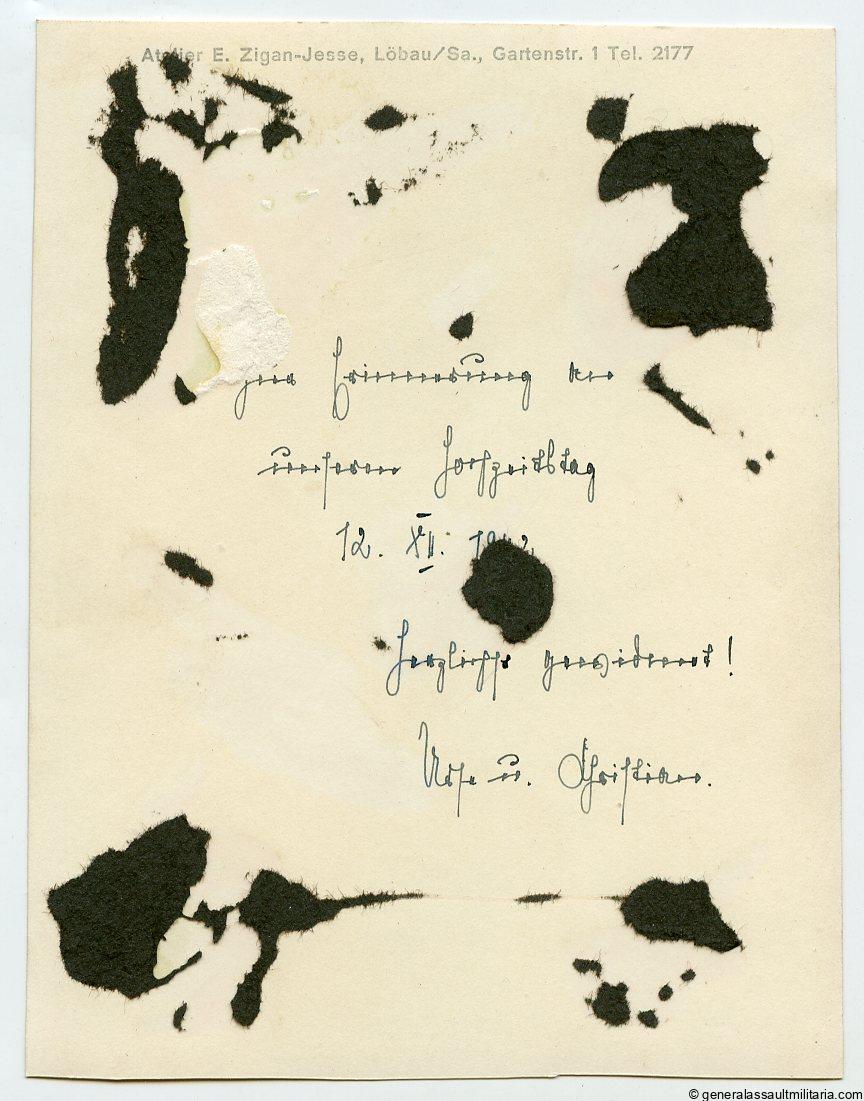 Atelier E. Zigan-Jesse, Löbau/Sa., Gartenstr. 1 Tel. 2177
zur Erinnerung an
unseren Hochzeitstag
12. XII.
Herzlichst gewidmet!
u. Christian.
© generalassaultmilitaria.com